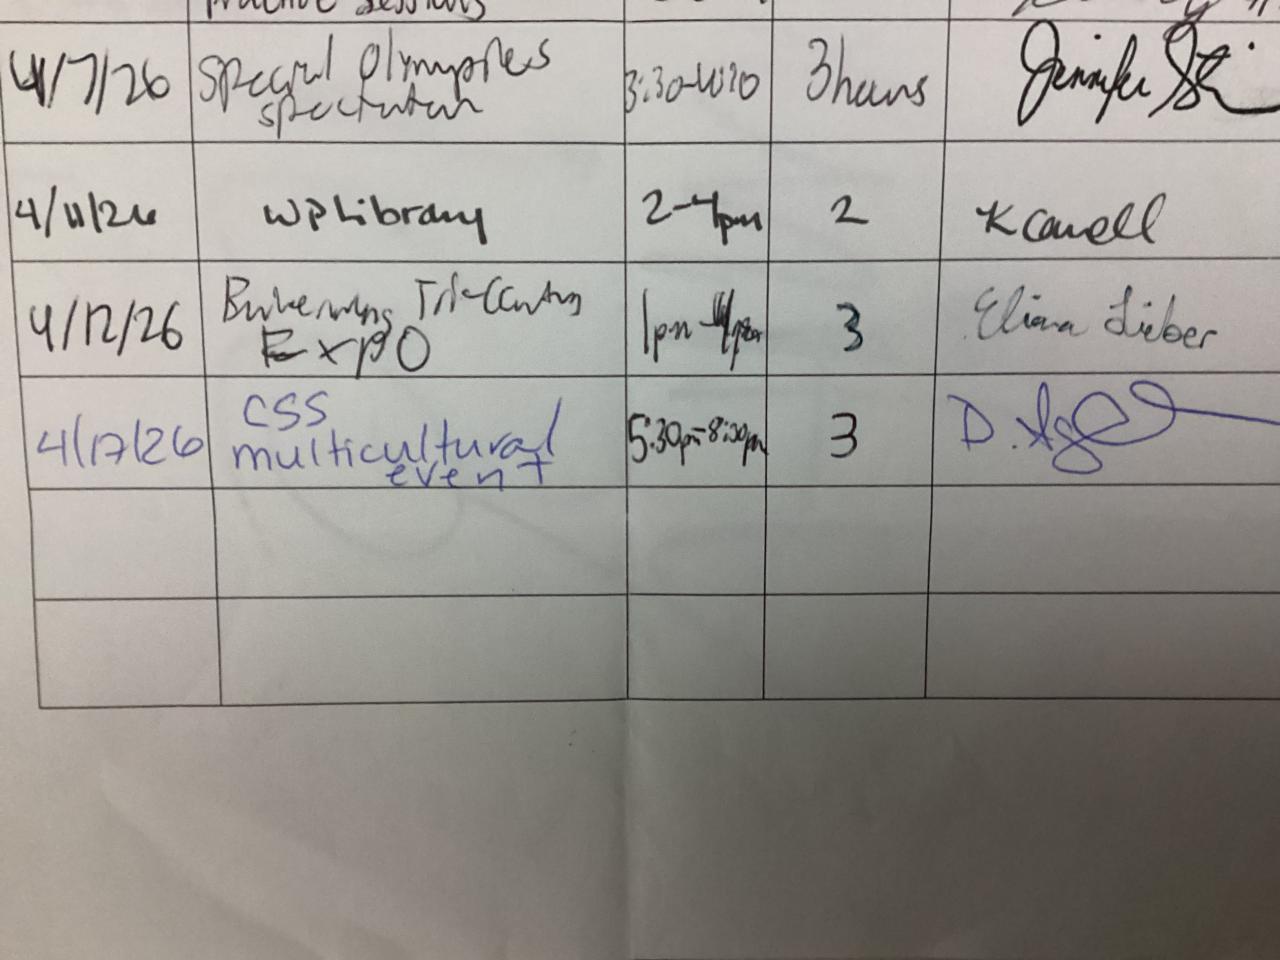 practice sessions
4/7/26 Special Olympics 3:30-6:30 3 hours Jennifer
spectator
4/11/26 WP Library 2-4pm 2 K Cavell
4/12/26 Tri-County 1pm-4pm 3 Eliana Lieber
Expo
4/17/26 CSS 5:30pm-8:30pm 3 D.
multicultural
event